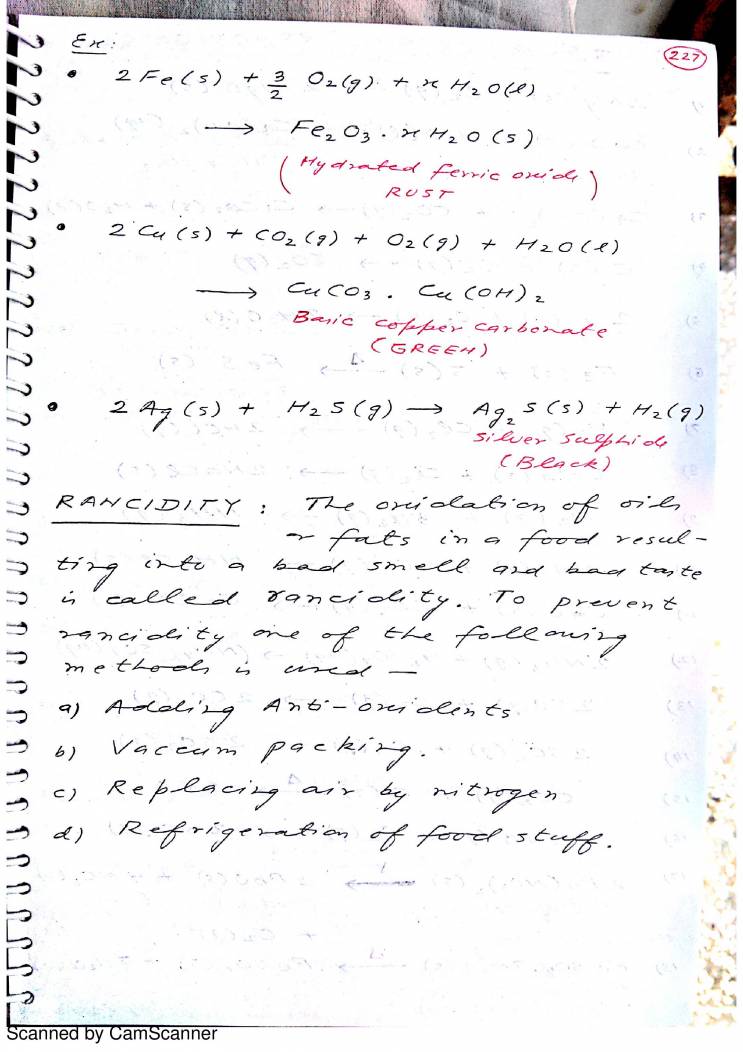 Ex:
227
• 2 Fe(s) + 3/2 O2(g) + x H2O(l)
⟶ Fe2O3 . x H2O (s)
(Hydrated ferric oxide)
RUST
• 2 Cu (s) + CO2 (g) + O2 (g) + H2O (l)
⟶ CuCO3 . Cu (OH)2
Basic copper carbonate
(GREEN)
• 2 Ag (s) + H2S(g) ⟶ Ag2S(s) + H2(g)
Silver Sulphide
(Black)
RANCIDITY : The oxidation of oils
or fats in a food resul-
ting into a bad smell and bad taste
is called rancidity. To prevent
rancidity one of the following
methods is used —
a) Adding Anti-oxidents
b) Vaccum packing.
c) Replacing air by nitrogen
d) Refrigeration of food stuff.
Scanned by CamScanner